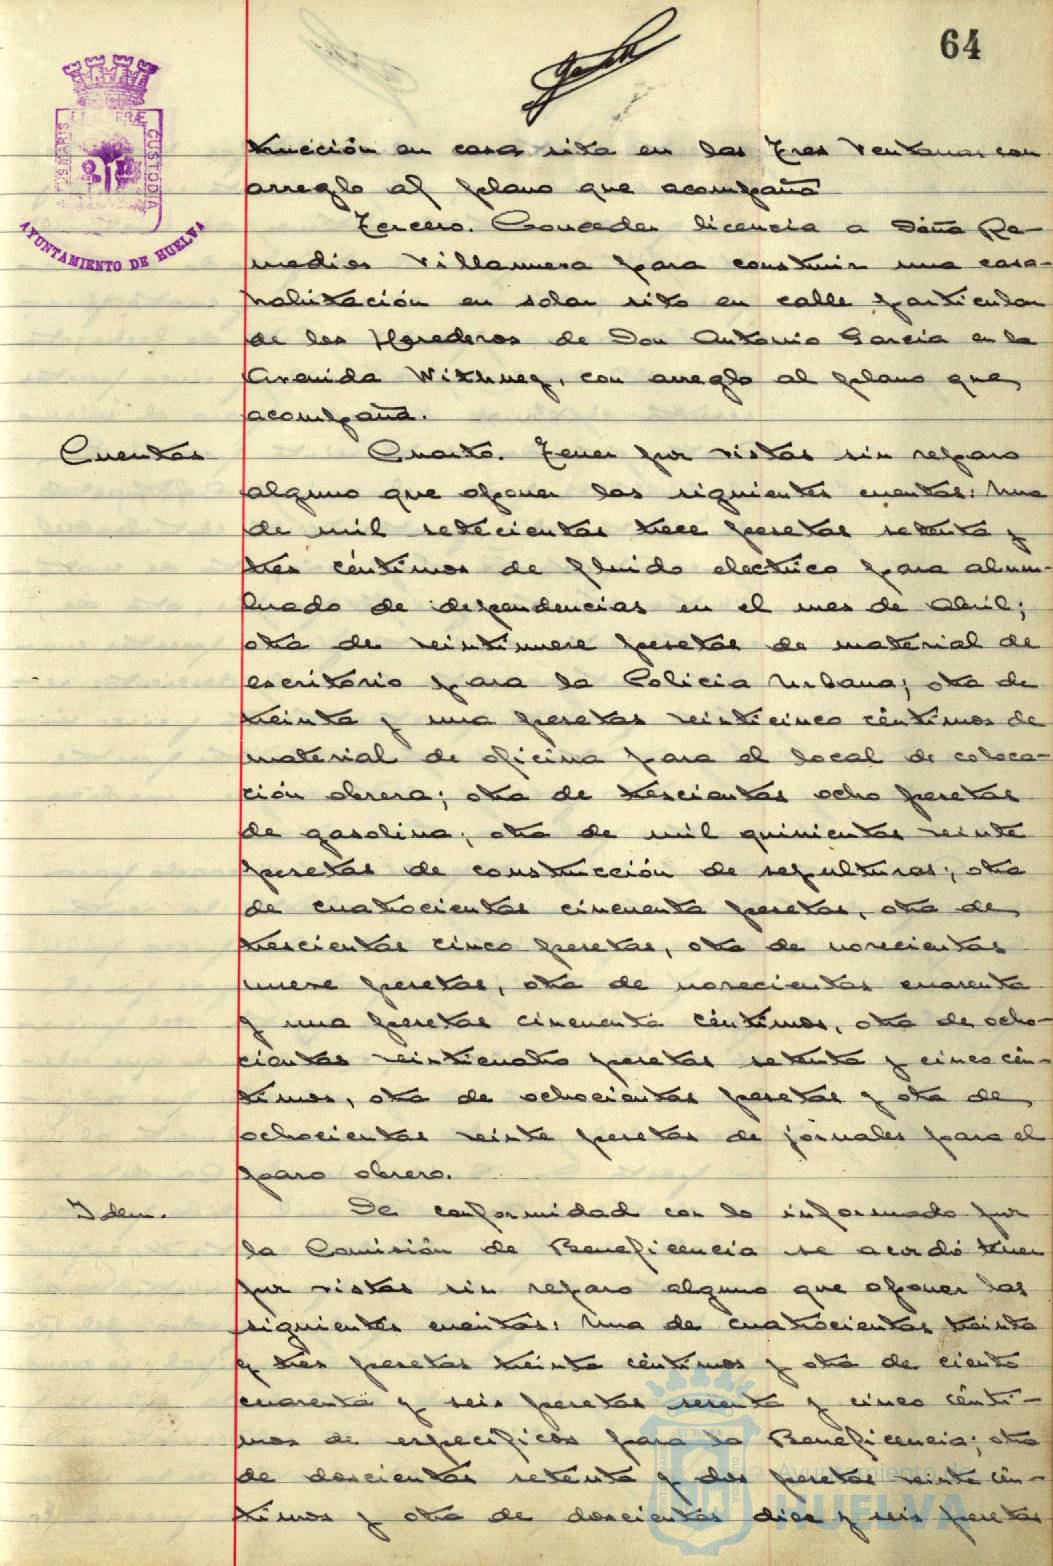 64
PORTUS MARIS ET TERRÆ CUSTODIA
AYUNTAMIENTO DE HUELVA
trucción en casa sita en las Tres Ventanas con
arreglo al plano que acompaña
Tercero. Conceder licencia a Doña Re-
medios Villanueva para construir una casa-
habitación en solar sito en calle particular
de los Herederos de Don Antonio Garcia en la
Avenida con arreglo al plano que
acompaña.
Cuentas
Cuarto. Tener por vistas sin reparo
alguno que oponer las siguientes cuentas: Una
de mil setecientas trece pesetas setenta y
tres céntimos de fluido electrico para alum-
brado de dependencias en el mes de Abril;
otra de veintinueve pesetas de material de
escritorio para la Policia Urbana; otra de
treinta y una pesetas veinticinco céntimos de
material de oficina para el local de coloca-
ción obrera; otra de trescientas ocho pesetas
de gasolina; otra de mil quinientas veinte
pesetas de construcción de sepulturas; otra
de cuatrocientas cincuenta pesetas, otra de
trescientas cinco pesetas, otra de novecientas
nueve pesetas, otra de novecientas cuarenta
y una pesetas cincuenta céntimos, otra de ocho-
cientas veinticuatro pesetas setenta y cinco cén-
timos, otra de ochocientas pesetas y otra de
ochocientas veinte pesetas de jornales para el
paro obrero.
Idem.
De conformidad con lo informado por
la Comisión de Beneficencia se acordó tener
por vistas sin reparo alguno que oponer las
siguientes cuentas: Una de cuatrocientas treinta
y tres pesetas treinta céntimos y otra de ciento
cuarenta y seis pesetas sesenta y cinco cénti-
mos de especificos para la Beneficencia; otra
de doscientas setenta y dos pesetas veinte cén-
timos y otra de doscientas diez y seis pesetas
Ayuntamiento de
HUELVA